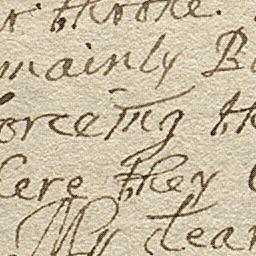 throne.
mainly B
forceing th
here they
My dear